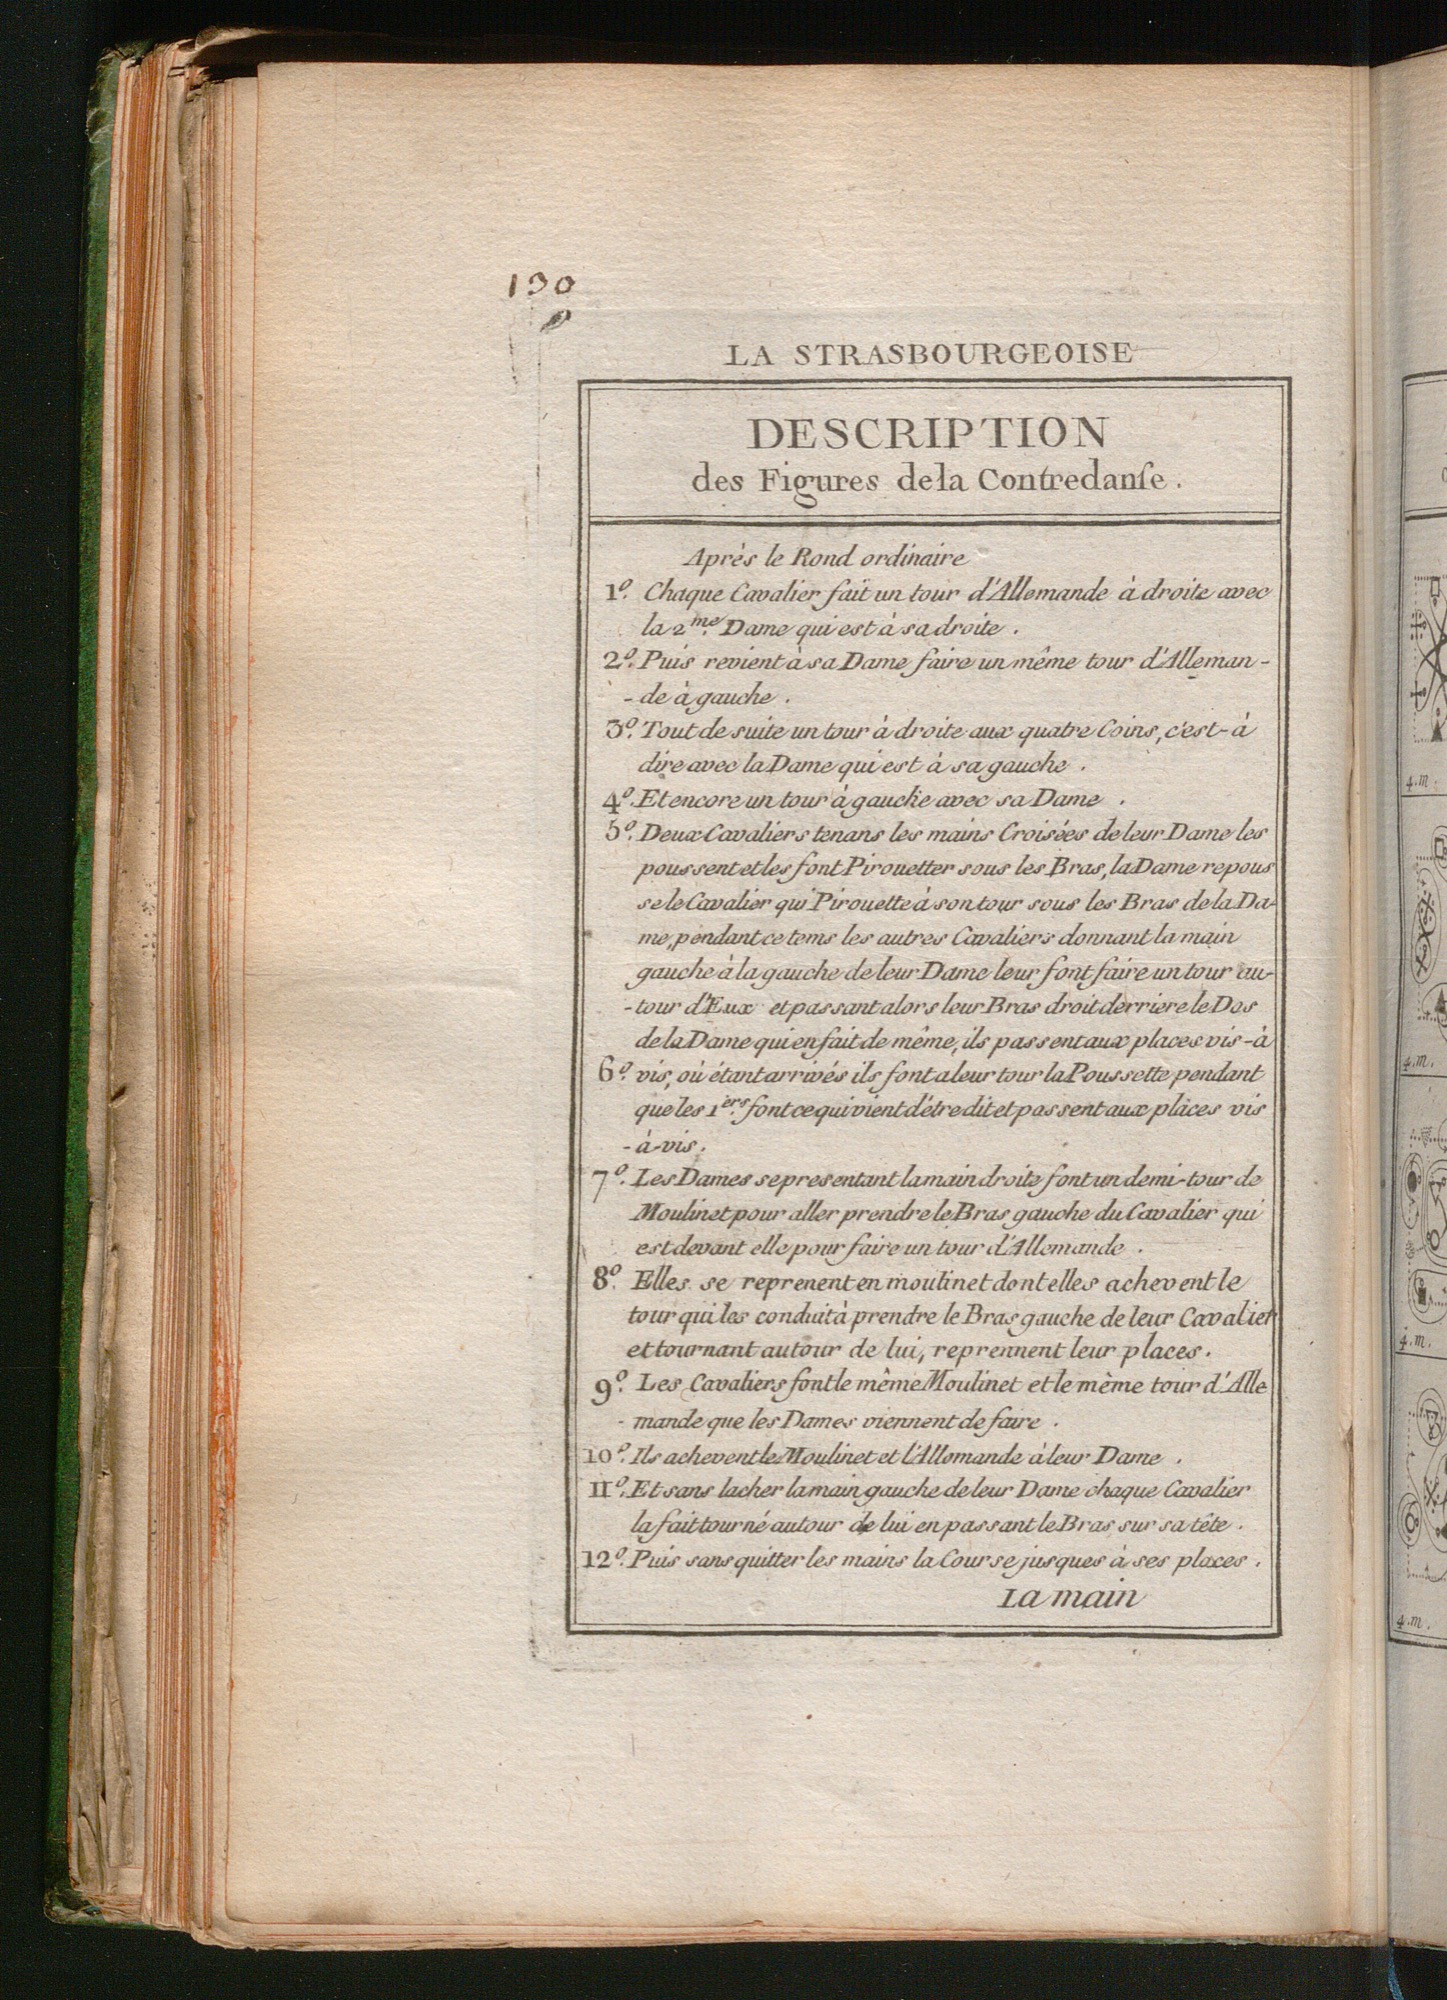 190
LA STRASBOURGEOISE
DESCRIPTION
des Figures de la Contredanſe.
Après le Rond ordinaire
1.º Chaque Cavalier fait un tour d'Allemande à droite avec
la 2.me Dame qui est à sa droite.
2.º Puis revient à sa Dame faire un même tour d'Alleman-
-de à gauche.
3.º Tout de suite un tour à droite aux quatre Coins, c'est-à
dire avec la Dame qui est à sa gauche.
4.º Et encore un tour à gauche avec sa Dame.
5.º Deux Cavaliers tenans les mains Croisées de leur Dame les
poussent et les font Pirouetter sous les Bras, la Dame repous
se le Cavalier qui Pirouette à son tour sous les Bras de la Da-
me, pendant ce tems les autres Cavaliers donnant la main
gauche à la gauche de leur Dame leur font faire un tour au-
-tour d'Eux et passant alors leur Bras droit derriere le Dos
de la Dame qui en fait de même, ils passent aux places vis-à
6.º vis, où étant arrivés ils font a leur tour la Poussette pendant
que les 1.ers font ce qui vient d'être dit et passent aux places vis
-à-vis.
7.º Les Dames se presentant la main droite font un demi-tour de
Moulinet pour aller prendre le Bras gauche du Cavalier qui
est devant elle pour faire un tour d'Allemande.
8.º Elles se reprenent en moulinet dont elles achevent le
tour qui les conduit à prendre le Bras gauche de leur Cavalier
et tournant autour de lui, reprennent leur places.
9.º Les Cavaliers font le même Moulinet et le mème tour d'Alle
-mande que les Dames viennent de faire.
10.º Ils achevent le Moulinet et l'Allemande à leur Dame.
11.º Et sans lacher la main gauche de leur Dame chaque Cavalier
la fait tourné autour de lui en passant le Bras sur sa tête.
12.º Puis sans quitter les mains la Course jusques à ses places.
La main
4.m.
4.m.
4.m.
4.m.